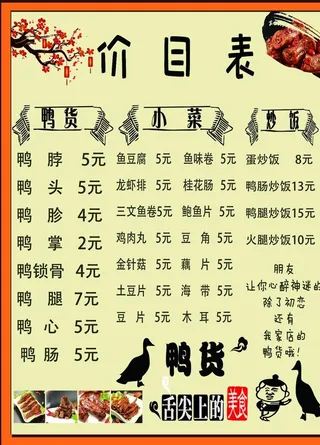 价目表
鸭货
鸭脖 5元
鸭头 5元
鸭胗 4元
鸭掌 2元
鸭锁骨 4元
鸭腿 7元
鸭心 5元
鸭肠 5元
小菜
鱼豆腐 5元 鱼味卷 5元
龙虾排 5元 桂花肠 5元
三文鱼卷5元 鲍鱼片 5元
鸡肉丸 5元 豆角 5元
金针菇 5元 藕片 5元
土豆片 5元 海带 5元
豆片 5元 木耳 5元
炒饭
蛋炒饭 8元
鸭肠炒饭13元
鸭腿炒饭15元
火腿炒饭10元
朋友
让你心醉神迷的
除了初恋
还有
我家店的
鸭货哦!
鸭货
舌尖上的美食